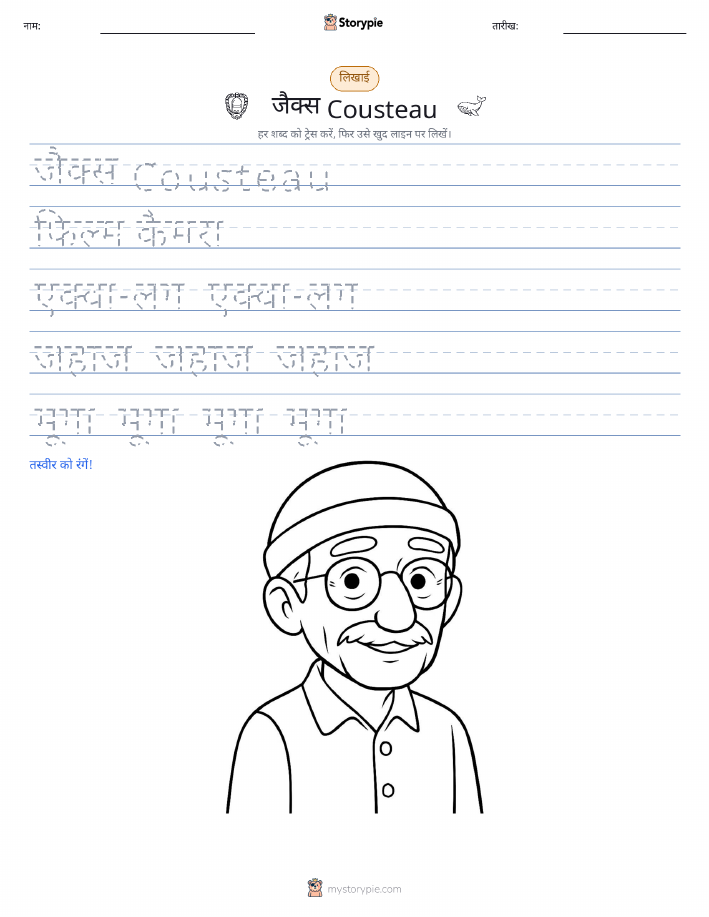 नाम:
Storypie
तारीख:
लिखाई
जैक्स Cousteau
हर शब्द को ट्रेस करें, फिर उसे खुद लाइन पर लिखें।
जैक्स Cousteau
फिल्म कैमरा
एक्वा-लंग एक्वा-लंग
जहाज जहाज जहाज
मूंगा मूंगा मूंगा मूंगा
तस्वीर को रंगें!
mystorypie.com